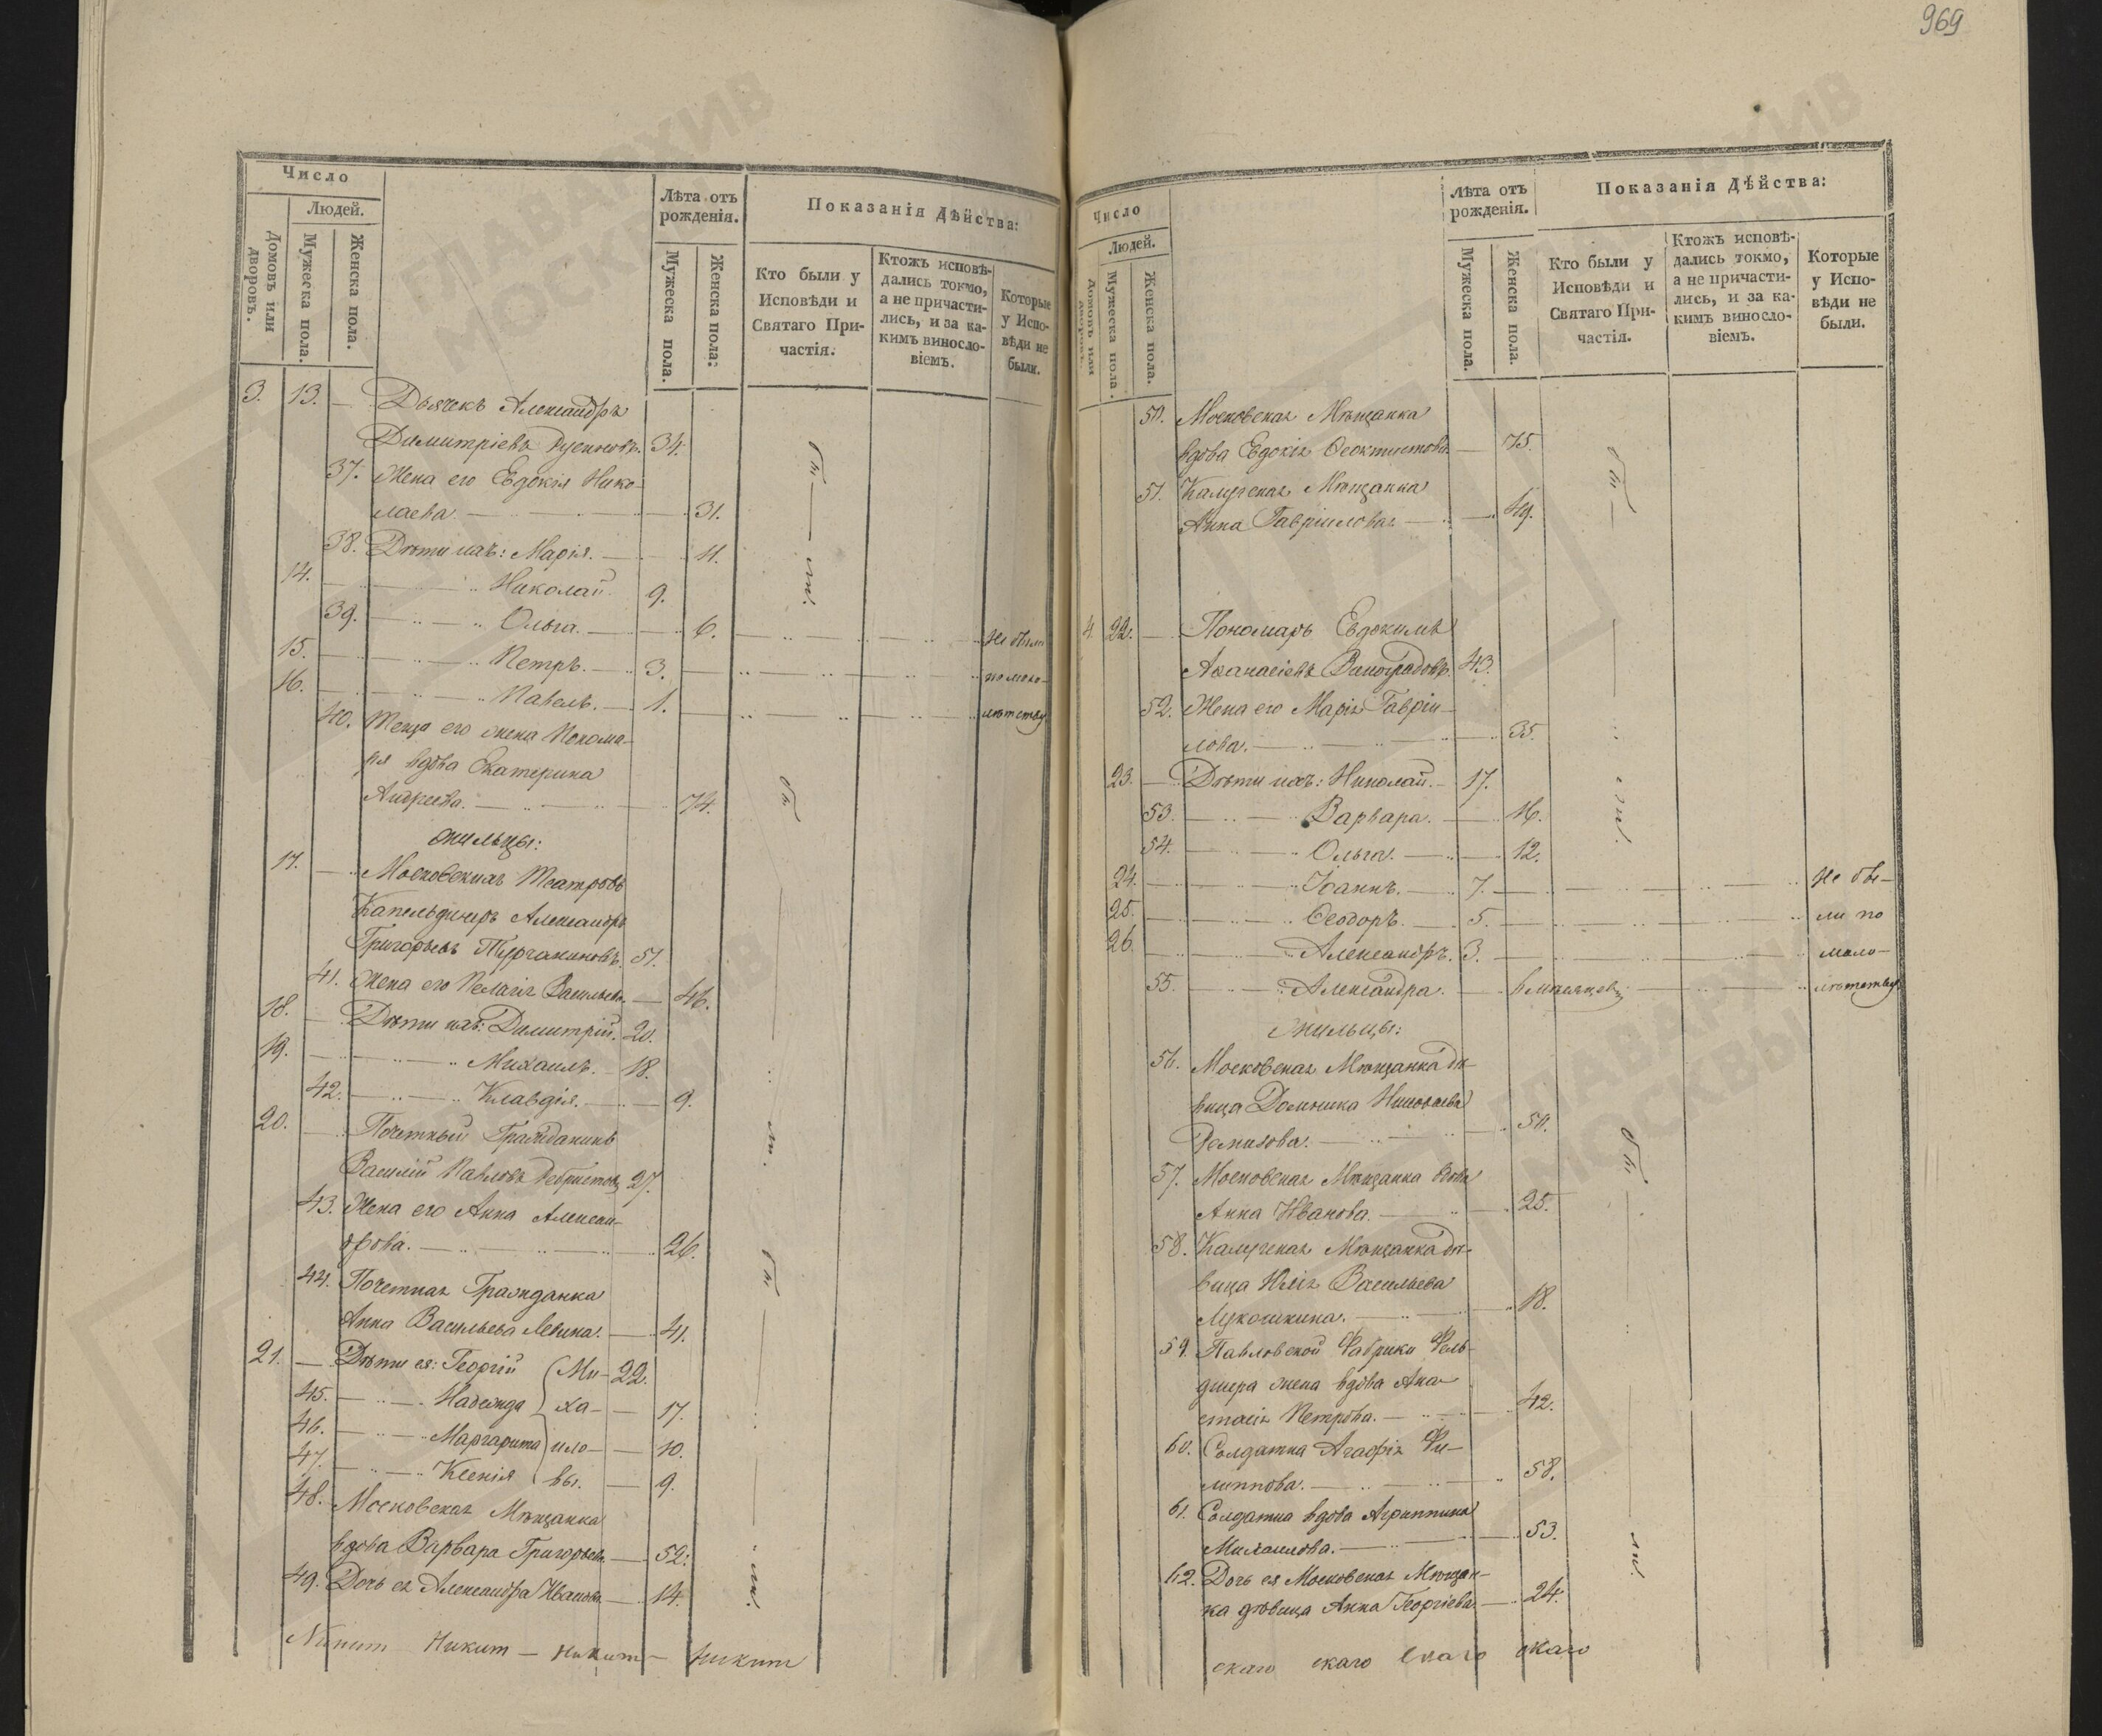 969
Число
Людей.
Домовъ или дворовъ.
Мужеска пола.
Женска пола.
Лѣта отъ рожденія.
Мужеска пола.
Женска пола.
Показанія Дѣйства:
Кто были у Исповѣди и Святаго Причастія.
Ктожъ исповѣдались токмо, а не причастились, и за какимъ винословіемъ.
Которые у Исповѣди не были.
3. 13. — Дьячекъ Александръ
Димитріевъ 34.
37. Жена его Евдокія Нико-
лаева. — 31.
38. Дѣти ихъ: Марія. — 11.
14. Николай. 9.
39. Ольга. — 6. не были
15. Петръ. — 3. по мало-
16. Павелъ. — 1. лѣтству
40. Теща его жена Понома-
ря вдова Екатерина
Андреева. — 74.
жильцы:
17. — Московскихъ Театровъ
Капельдинеръ Александръ
Григорьевъ 51.
41. Жена его Пелагія Васильева — 46.
18. — Дѣти ихъ: Димитрій. 20.
19. Михаилъ. — 18.
42. Клавдія. — 9.
20. — Почетный Гражданинъ
Василій Павловъ 27.
43. Жена его Анна Алексан-
дрова. — 26.
44. Почетная Гражданка
Анна Васильева Левина. — 41.
21. — Дѣти ея: Георгій (Ми- 22.
45. Надежда ха- — 17.
46. Маргарита ило- — 10.
47. Ксенія вы. — 9.
48. Московская Мѣщанка
вдова Варвара Григорьева — 52.
49. Дочь ея Александра Иванова — 14.
Никит — Никит — Никит — Никит
Число
Людей.
Домовъ или дворовъ.
Мужеска пола
Женска пола.
Лѣта отъ рожденія.
Мужеска пола.
Женска пола.
Показанія Дѣйства:
Кто были у Исповѣди и Святаго Причастія.
Ктожъ исповѣдались токмо, а не причастились, и за какимъ винословіемъ.
Которые у Исповѣди не были.
50. Московская Мѣщанка
вдова Евдокія Ѳеоктистова — 75.
51. Калужская Мѣщанка
Анна Гавріилова — 49.
4. 22. — Пономарь Евдокимъ
Аѳанасіевъ Виноградовъ. 43.
52. Жена его Марія Гавріи-
лова. — 35.
23. — Дѣти ихъ: Николай. — 17.
53. Варвара. — 16.
54. Ольга. — 12.
24. Іоаннъ. — 7. не бы-
25. Ѳеодоръ. — 5. ли по
26. Александръ. 3. мало-
55. Александра. — 6 мѣсяцевъ лѣтству
жильцы:
56. Московская Мѣщанка дѣ-
вица Домника Николаева
— 50.
57. Московская Мѣщанка вдова
Анна Иванова. — 25.
58. Калужская Мѣщанка дѣ-
вица Юлія Васильева
Лукошкина. — 18.
59. Павловской Фабрики Фель-
дшера жена вдова Ана-
стасія Петрова. — 42.
60. Солдатка Агафія Фи-
липпова. — 58.
61. Солдатка вдова Агриппина
Михаилова. — 53.
62. Дочь ея Московская Мѣщан-
ка дѣвица Анна Георгіева. — 24.
скаго скаго скаго скаго
ГЛАВАРХИВ
МОСКВЫ